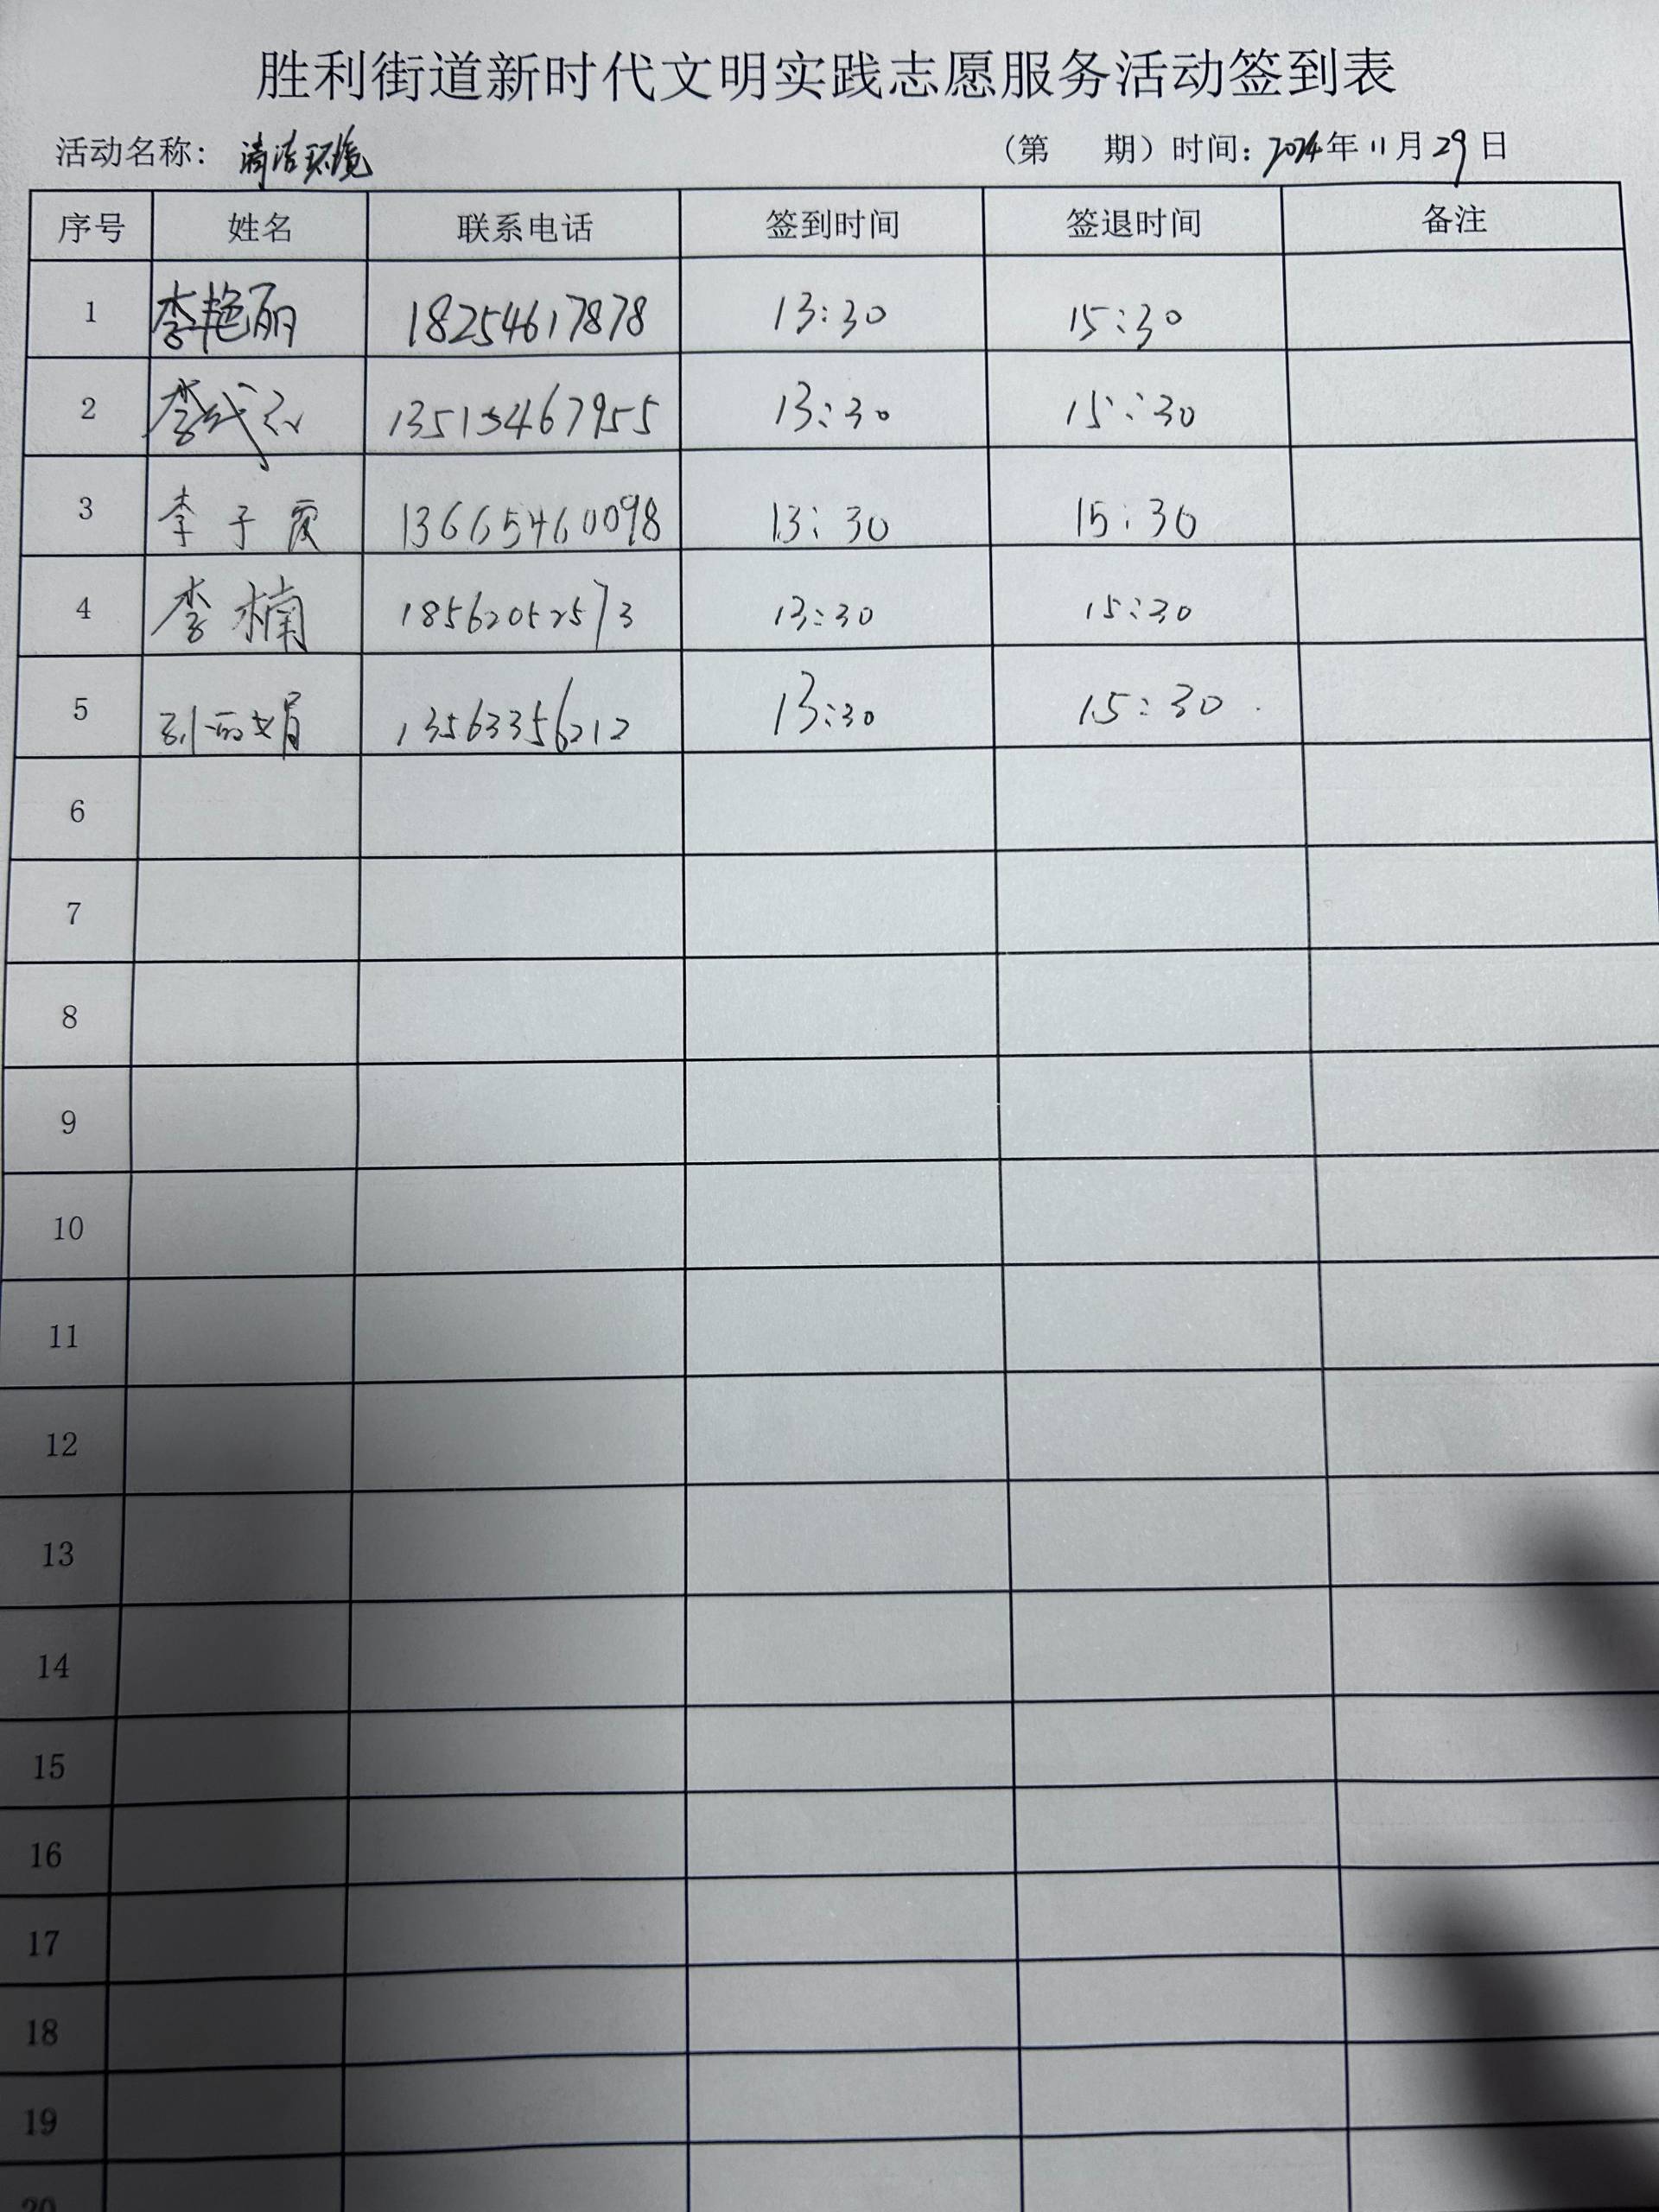 胜利街道新时代文明实践志愿服务活动签到表
活动名称: 清洁环境 (第 期) 时间: 2024年11月29日
序号 姓名 联系电话 签到时间 签退时间 备注
1 李艳丽 18254617878 13:30 15:30
2 李 13515467955 13:30 15:30
3 李子霞 13665460098 13:30 15:30
4 李楠 18562052573 13:30 15:30
5 刘丽娟 13563356212 13:30 15:30
6
7
8
9
10
11
12
13
14
15
16
17
18
19
20